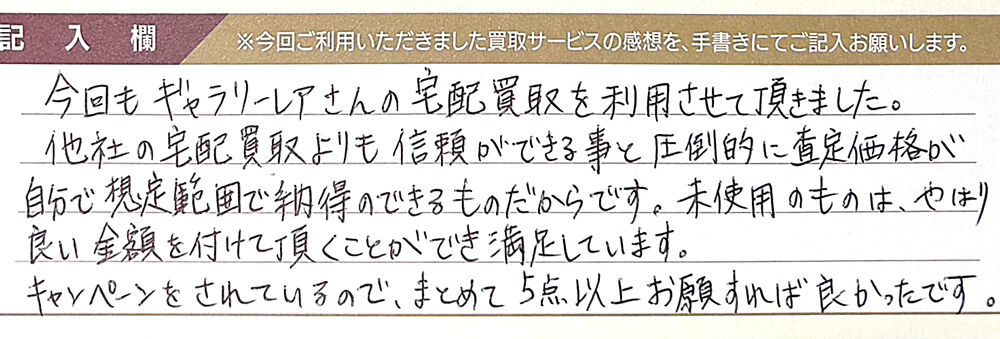 記入欄 ※今回ご利用いただきました買取サービスの感想を、手書きにてご記入お願いします。
今回もギャラリーレアさんの宅配買取を利用させて頂きました。
他社の宅配買取よりも信頼ができる事と圧倒的に査定価格が
自分で想定範囲で納得のできるものだからです。未使用のものは、やはり
良い金額を付けて頂くことができ満足しています。
キャンペーンをされているので、まとめて5点以上お願すれば良かったです。